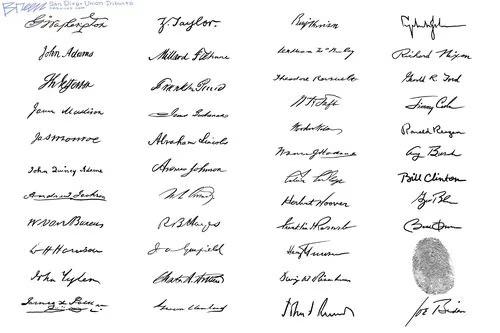 Breen San Diego Union Tribune
G Washington
John Adams
Th Jefferson
James Madison
Jas Monroe
John Quincy Adams
Andrew Jackson
M Van Buren
W H Harrison
John Tyler
James K Polk
Z. Taylor.
Millard Fillmore
Franklin Pierce
James Buchanan
Abraham Lincoln
Andrew Johnson
U. S. Grant
R B Hayes
J A Garfield
Chester A. Arthur
Grover Cleveland
Benj Harrison
William McKinley
Theodore Roosevelt
W H Taft
Woodrow Wilson
Warren G Harding
Calvin Coolidge
Herbert Hoover
Franklin D Roosevelt
Harry Truman
Dwight D Eisenhower
John F Kennedy
Lyndon B Johnson
Richard Nixon
Gerald R. Ford
Jimmy Carter
Ronald Reagan
Geo Bush
Bill Clinton
Geo Bush
Barack Obama
Joe Biden